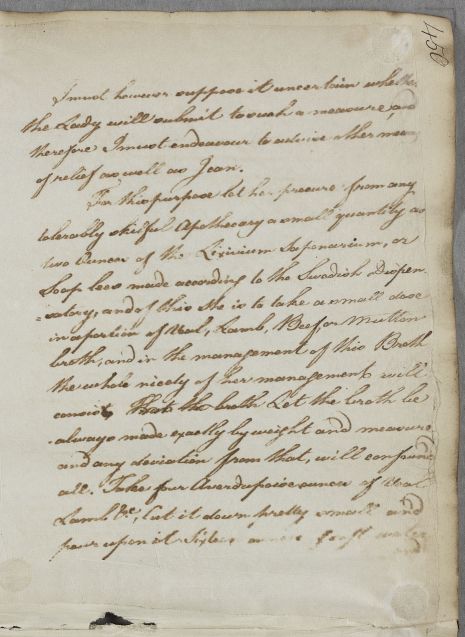 450
I must however suppose it uncertain whether
the Lady will submit to such a measure, and
therefore I must endeavour to advise other means
of relief as well as I can.
For this purpose let her procure from any
tolerably skilful Apothecary a small quantity as
two Ounces of the Lixivium Saponarium, or
Soap lees made according to the Swedish Dispen
=satory, and of this she is to take a small dose
in a portion of Veal, Lamb, Beef or Mutton
broth, and in the management of this Broth
the whole nicety of her management will
consist, That the broth Let the broth be
always made exactly by weight and measure
and any deviation from that, will confound
all. Take four Averdupoise ounces of Veal
Lamb &c, cut it down pretty small and
pour upon it Sixteen ounces of soft water
and